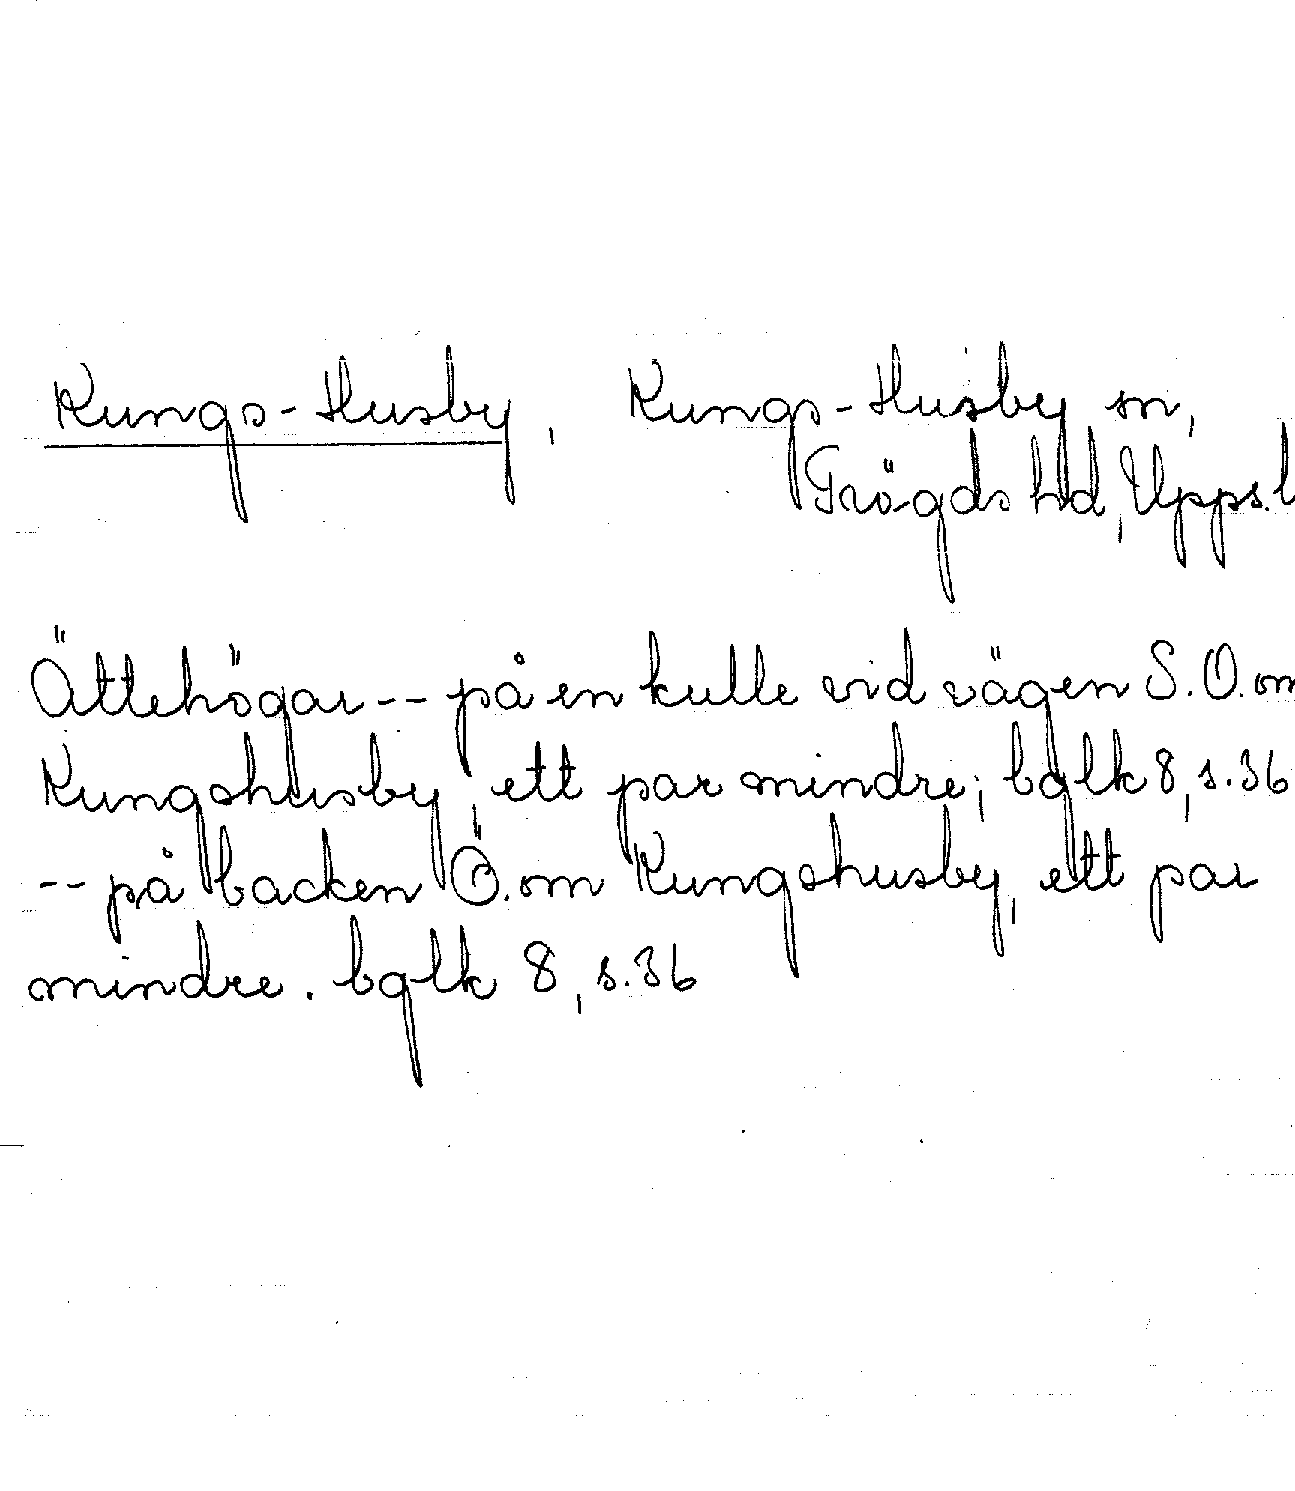 Kungs-Husby, Kungs-Husby sn,
Trögds hd, Upps. l
Ättehögar -- på en kulle vid vägen S.O. om
Kungshusby, ett par mindre; bglk 8, s. 36
-- på backen Ö. om Kungshusby, ett par
mindre. bglk 8, s. 36